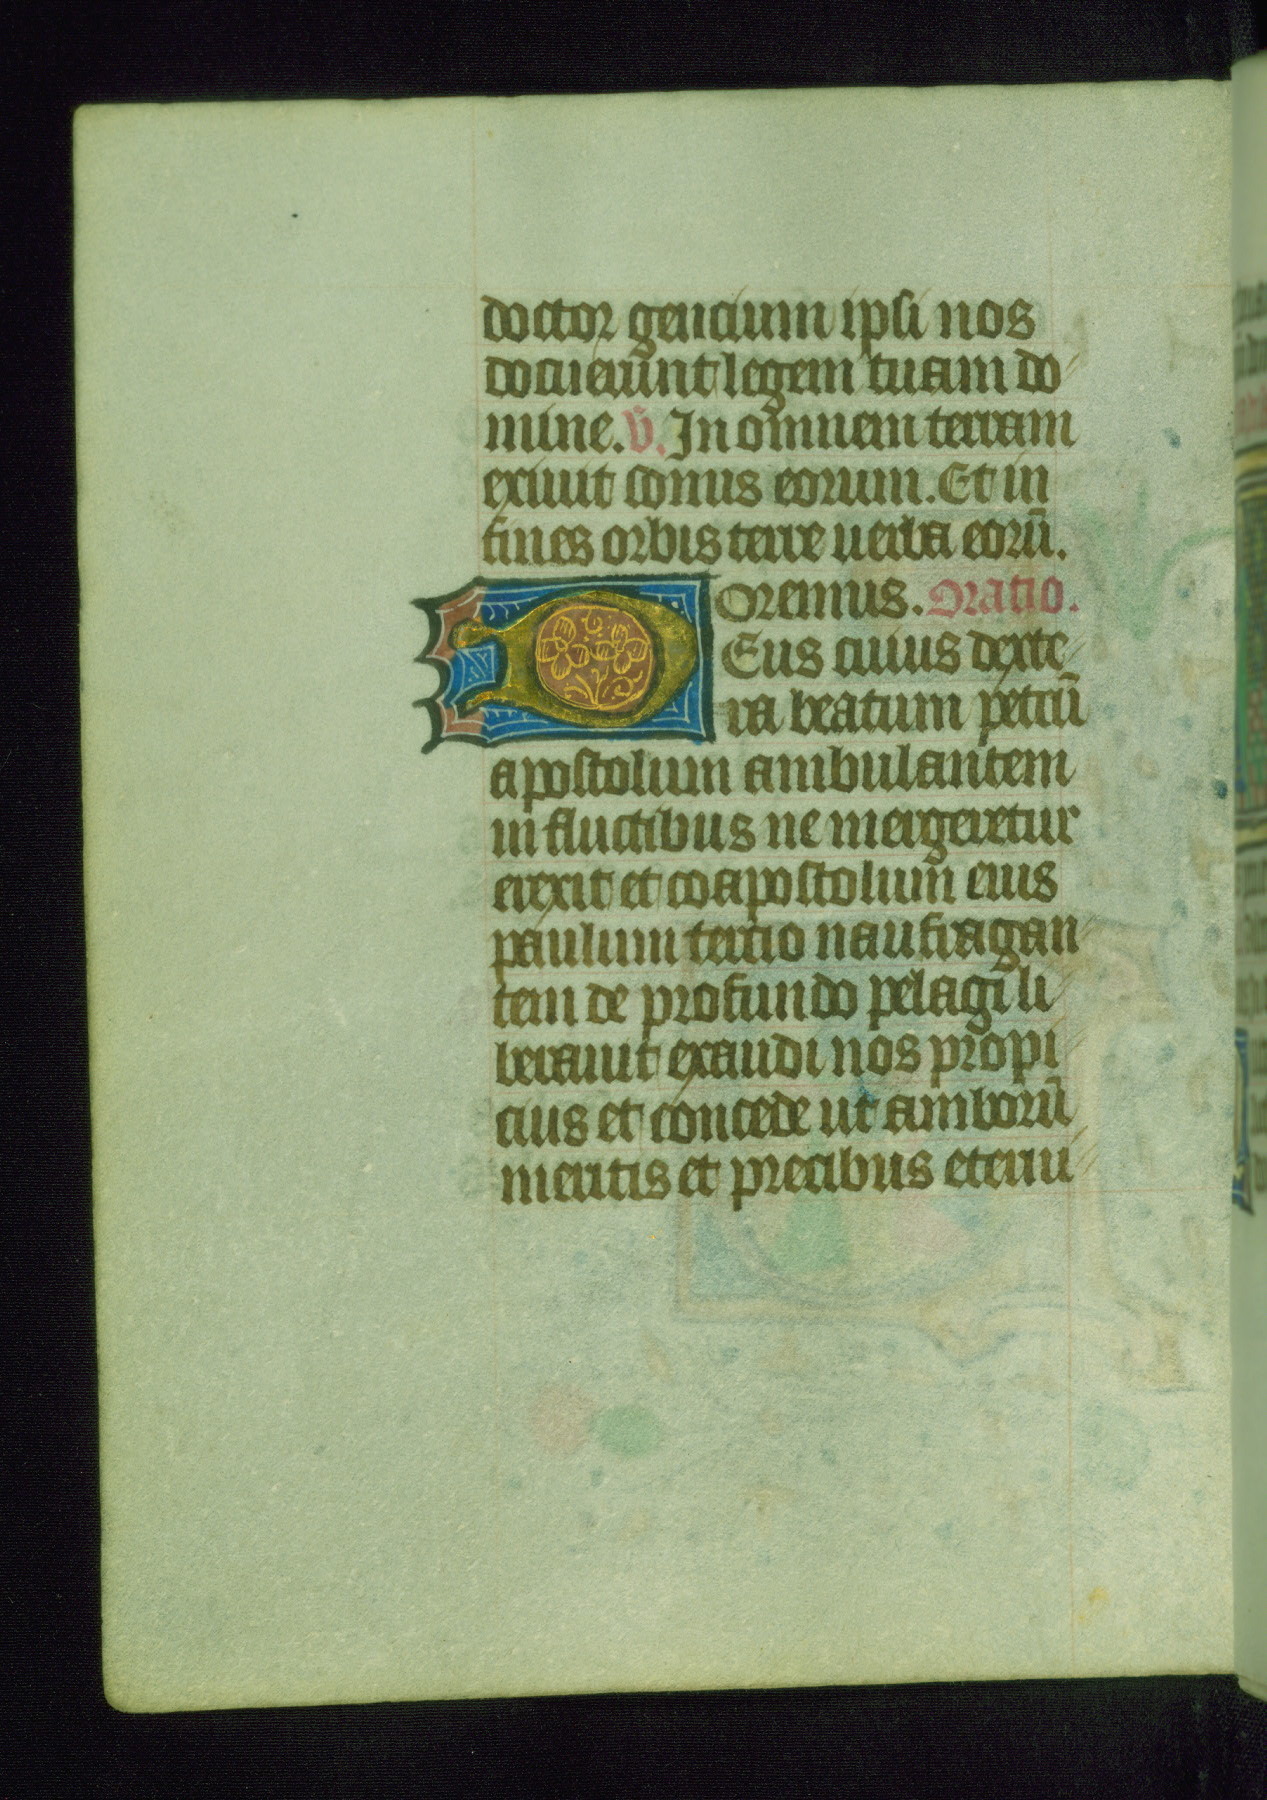 doctor gencium ipsi nos
docuerunt legem tuam do
mine. V̄. In omnem terram
exiuit sonus eorum. Et in
fines orbis terre uerba eorū.
oremus. Oratio.
DEus cuius dexte
ra beatum petrū
apostolum ambulantem
in fluctibus ne mergeretur
erexit et coapostolum eius
paulum tercio naufragan
tem de profundo pelagi li
berauit exaudi nos propi
cius et concede ut amborū
meritis et precibus eterni